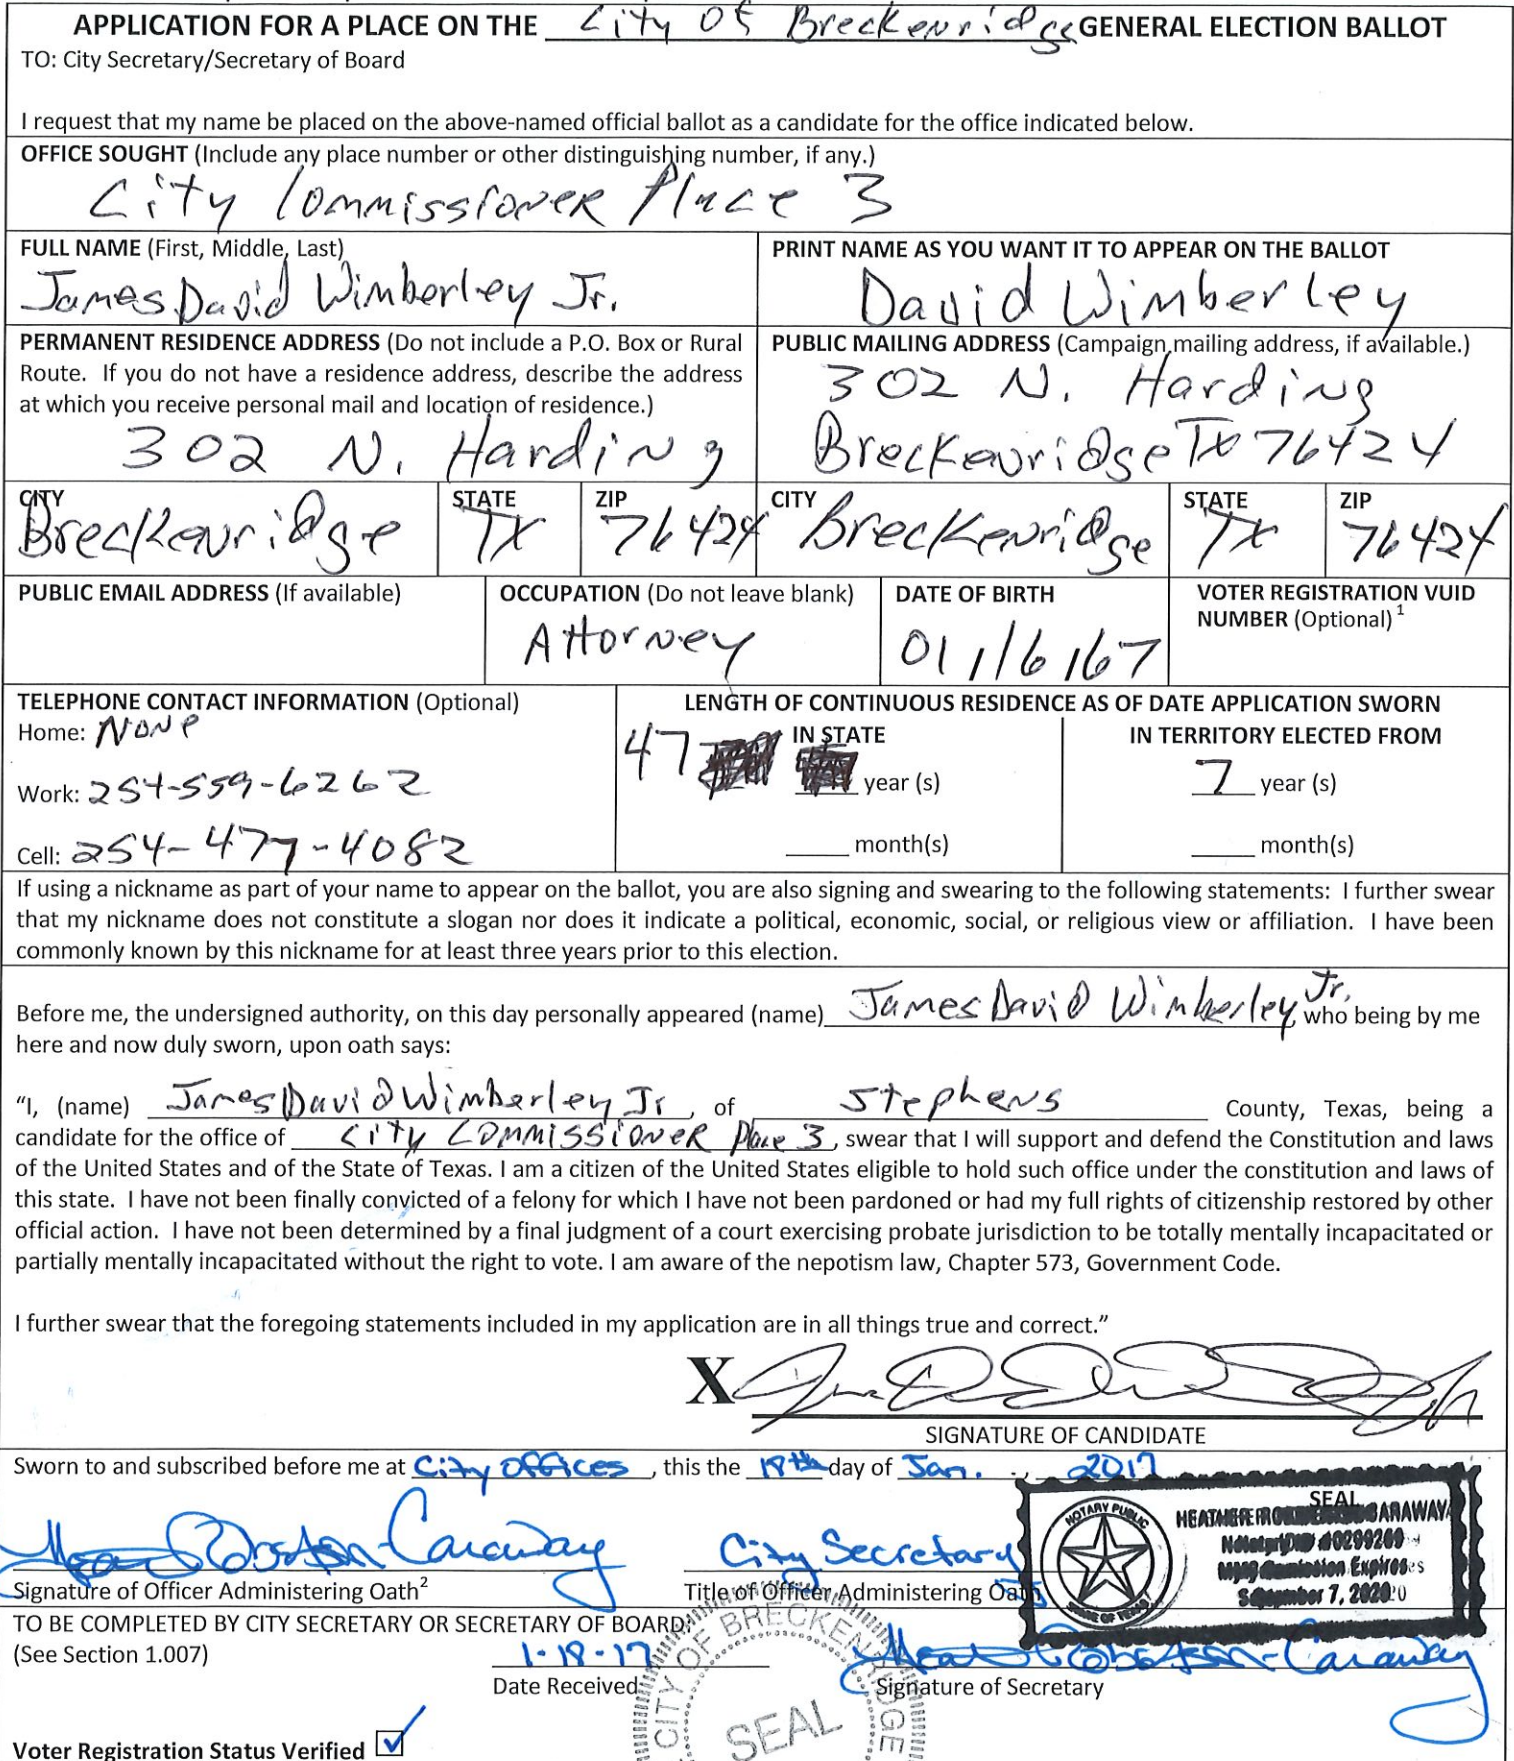 APPLICATION FOR A PLACE ON THE City of Breckenridge GENERAL ELECTION BALLOT
TO: City Secretary/Secretary of Board
I request that my name be placed on the above-named official ballot as a candidate for the office indicated below.
OFFICE SOUGHT (Include any place number or other distinguishing number, if any.)
City Commissioner Place 3
FULL NAME (First, Middle, Last)
James David Wimberley Jr.
PRINT NAME AS YOU WANT IT TO APPEAR ON THE BALLOT
David Wimberley
PERMANENT RESIDENCE ADDRESS (Do not include a P.O. Box or Rural
Route. If you do not have a residence address, describe the address
at which you receive personal mail and location of residence.)
302 N. Harding
PUBLIC MAILING ADDRESS (Campaign mailing address, if available.)
302 N. Harding
Breckenridge Tx 76424
CITY
Breckenridge
STATE
TX
ZIP
76424
CITY
Breckenridge
STATE
Tx
ZIP
76424
PUBLIC EMAIL ADDRESS (If available)
OCCUPATION (Do not leave blank)
Attorney
DATE OF BIRTH
01/16/67
VOTER REGISTRATION VUID
NUMBER (Optional) 1
TELEPHONE CONTACT INFORMATION (Optional)
Home: None
Work: 254-559-6262
Cell: 254-477-4082
LENGTH OF CONTINUOUS RESIDENCE AS OF DATE APPLICATION SWORN
IN STATE
47 year (s)
month(s)
IN TERRITORY ELECTED FROM
7 year (s)
month(s)
If using a nickname as part of your name to appear on the ballot, you are also signing and swearing to the following statements: I further swear
that my nickname does not constitute a slogan nor does it indicate a political, economic, social, or religious view or affiliation. I have been
commonly known by this nickname for at least three years prior to this election.
Before me, the undersigned authority, on this day personally appeared (name) James David Wimberley Jr., who being by me
here and now duly sworn, upon oath says:
"I, (name) James David Wimberley Jr, of Stephens County, Texas, being a
candidate for the office of City Commissioner Place 3, swear that I will support and defend the Constitution and laws
of the United States and of the State of Texas. I am a citizen of the United States eligible to hold such office under the constitution and laws of
this state. I have not been finally convicted of a felony for which I have not been pardoned or had my full rights of citizenship restored by other
official action. I have not been determined by a final judgment of a court exercising probate jurisdiction to be totally mentally incapacitated or
partially mentally incapacitated without the right to vote. I am aware of the nepotism law, Chapter 573, Government Code.
I further swear that the foregoing statements included in my application are in all things true and correct."
X
SIGNATURE OF CANDIDATE
Sworn to and subscribed before me at City Offices, this the 18th day of Jan., 2017
SEAL
NOTARY PUBLIC
STATE OF TEXAS
HEATHER CARAWAY
Expires
September 7, 2020
Heather Robertson-Caraway
City Secretary
Signature of Officer Administering Oath2
Title of Officer Administering Oath
TO BE COMPLETED BY CITY SECRETARY OR SECRETARY OF BOARD:
(See Section 1.007)
1-18-17
Heather Robertson-Caraway
Date Received
Signature of Secretary
CITY OF BRECKENRIDGE
SEAL
Voter Registration Status Verified